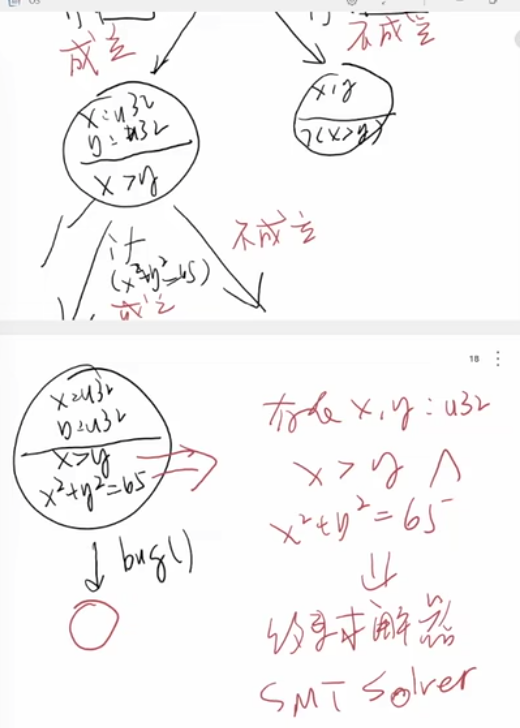 成立
不成立
x=u32
y=u32
x>y
x,y
¬(x>y)
if
(x²+y²=65)
成立
不成立
18
x=u32
y=u32
x>y
x²+y²=65
bug()
存在 x,y:u32
x > y ∧
x²+y²=65
⇓
约束求解器
SMT Solver